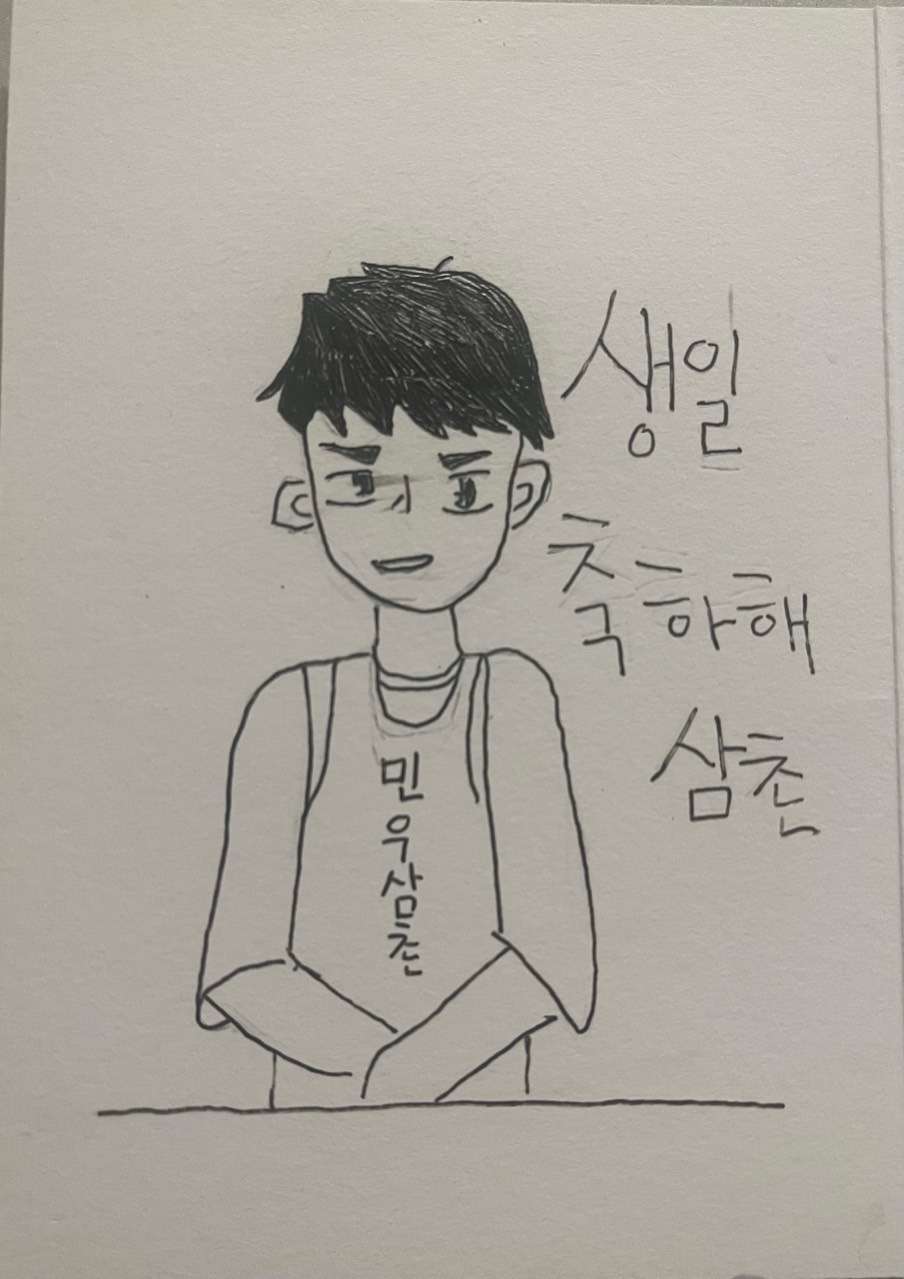 생일
축하해
삼촌
민우삼촌